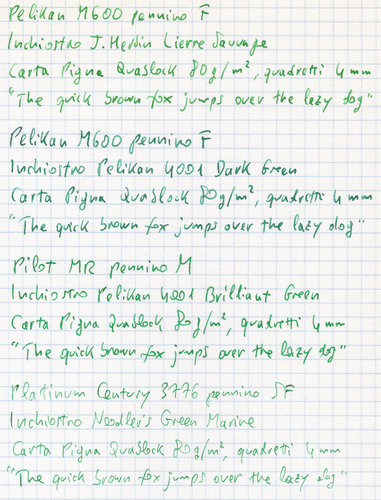 Pelikan M600 pennino F
Inchiostro J. Herbin Lierre Sauvage
Carta Pigna Quablock 80g/m², quadretti 4mm
"The quick brown fox jumps over the lazy dog"
Pelikan M600 pennino F
Inchiostro Pelikan 4001 Dark Green
Carta Pigna Quablock 80g/m², quadretti 4mm
"The quick brown fox jumps over the lazy dog"
Pilot MR pennino M
Inchiostro Pelikan 4001 Brilliant Green
Carta Pigna Quablock 80g/m², quadretti 4mm
"The quick brown fox jumps over the lazy dog"
Platinum Century 3776 pennino SF
Inchiostro Noodler's Green Marine
Carta Pigna Quablock 80g/m², quadretti 4mm
"The quick brown fox jumps over the lazy dog"